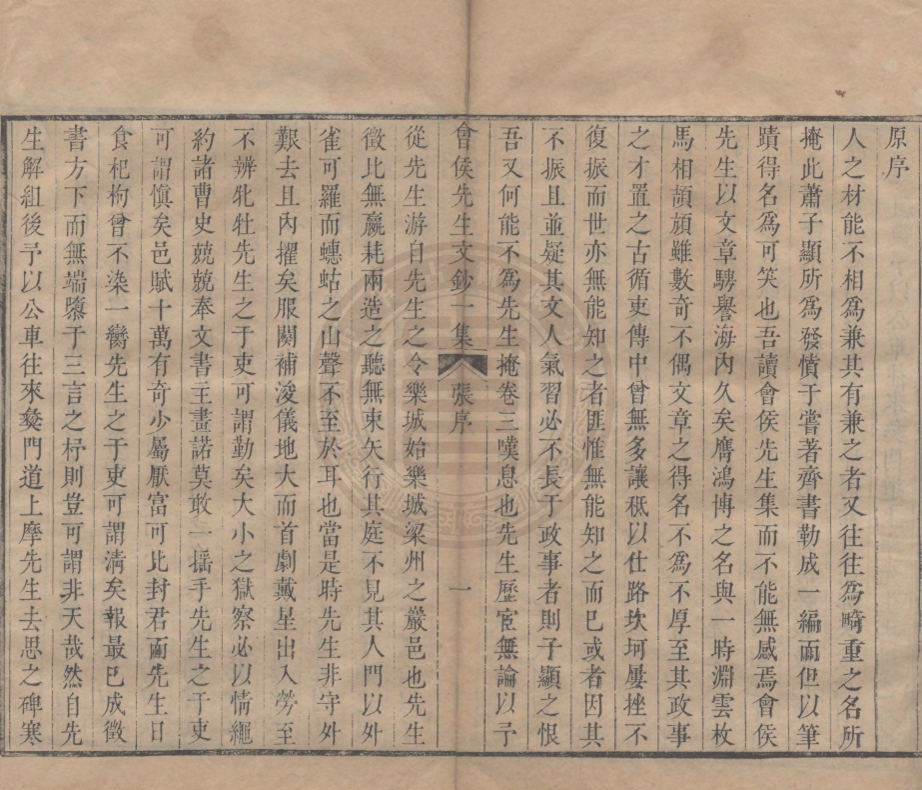 原序
人之材能不相爲兼其有兼之者又往往爲畸重之名所
掩此蕭子顯所爲發憤于嘗著齊書勒成一編而但以筆
蹟得名爲可笑也吾讀會侯先生集而不能無感焉會侯
先生以文章騁譽海內久矣膺鴻博之名與一時淵雲枚
馬相頡頏雖數奇不偶文章之得名不爲不厚至其政事
之才置之古循吏傳中曾無多讓秪以仕路坎坷屢挫不
復振而世亦無能知之者匪惟無能知之而已或者因其
不振且並疑其文人氣習必不長于政事者則子顯之恨
吾又何能不爲先生掩卷三嘆息也先生歷宦無論以予
會侯先生文鈔一集 張序 一
從先生游自先生之令樂城始樂城梁州之嚴邑也先生
徵比無羸耗兩造之聽無束矢行其庭不見其人門以外
雀可羅而蟪蛄之山聲不至於耳也當是時先生非守外
艱去且內擢矣服闋補浚儀地大而首劇戴星出入勞至
不辨牝牡先生之于吏可謂勤矣大小之獄察必以情繩
約諸曹史兢兢奉文書主畫諾莫敢一搖手先生之于吏
可謂愼矣邑賦十萬有奇少屬厭富可比封君而先生日
食杞枸曾不染一臠先生之于吏可謂淸矣報最已成徵
書方下而無端隳于三言之杼則豈可謂非天哉然自先
生解組後予以公車往來夔門道上摩先生去思之碑寒